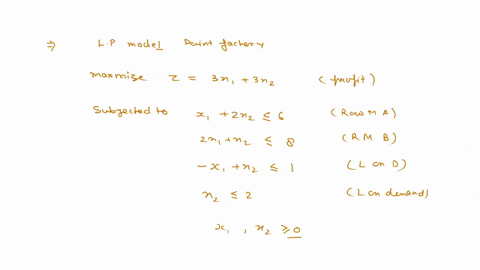 ⇒ L.P model Paint factory
maximize Z = 3x₁ + 3x₂ (profit)
Subjected to x₁ + 2x₂ ≤ 6 (Raw M A)
2x₁ + x₂ ≤ 8 (R M B)
-x₁ + x₂ ≤ 1 (L on D)
x₂ ≤ 2 (L on demand)
x₁ , x₂ ≥ 0